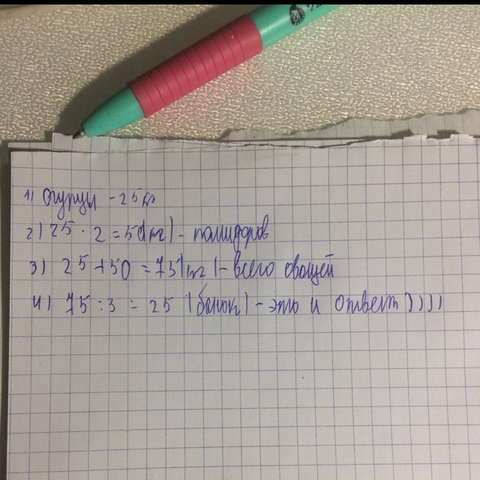 1) огурцы - 25 кг
2) 25 · 2 = 50(кг) - помидоров
3) 25 + 50 = 75(кг) - всего овощей
4) 75 : 3 = 25 (банок) - это и ответ))))